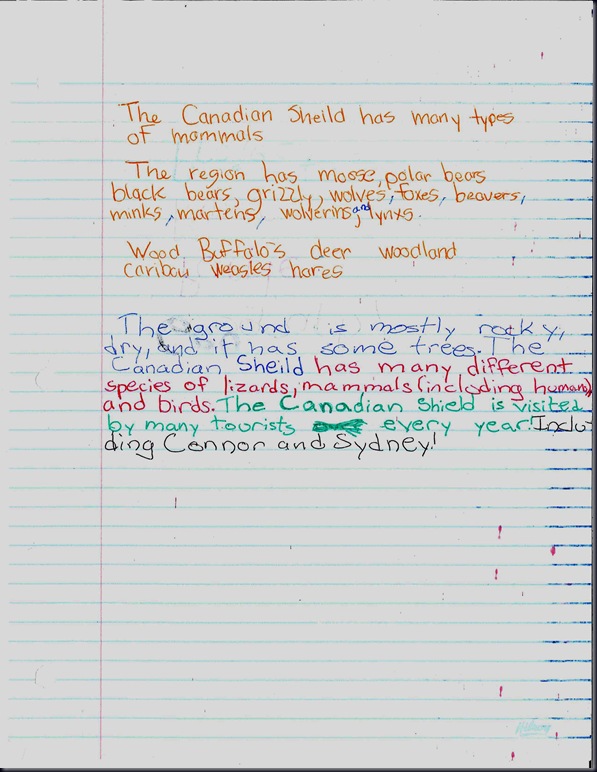 The Canadian Sheild has many types
of mammals
The region has moose, polar bears
black bears, grizzly, wolves, foxes, beavers,
minks, martens, wolverins, and lynxs.
Wood Buffalo's deer woodland
caribou weasles hares
The ground is mostly rocky,
dry, and it has some trees. The
Canadian Sheild has many different
species of lizards, mammals (including humans)
and birds. The Canadian Shield is visited
by many tourists every year! Inclu-
ding Connor and Sydney!
Hilroy